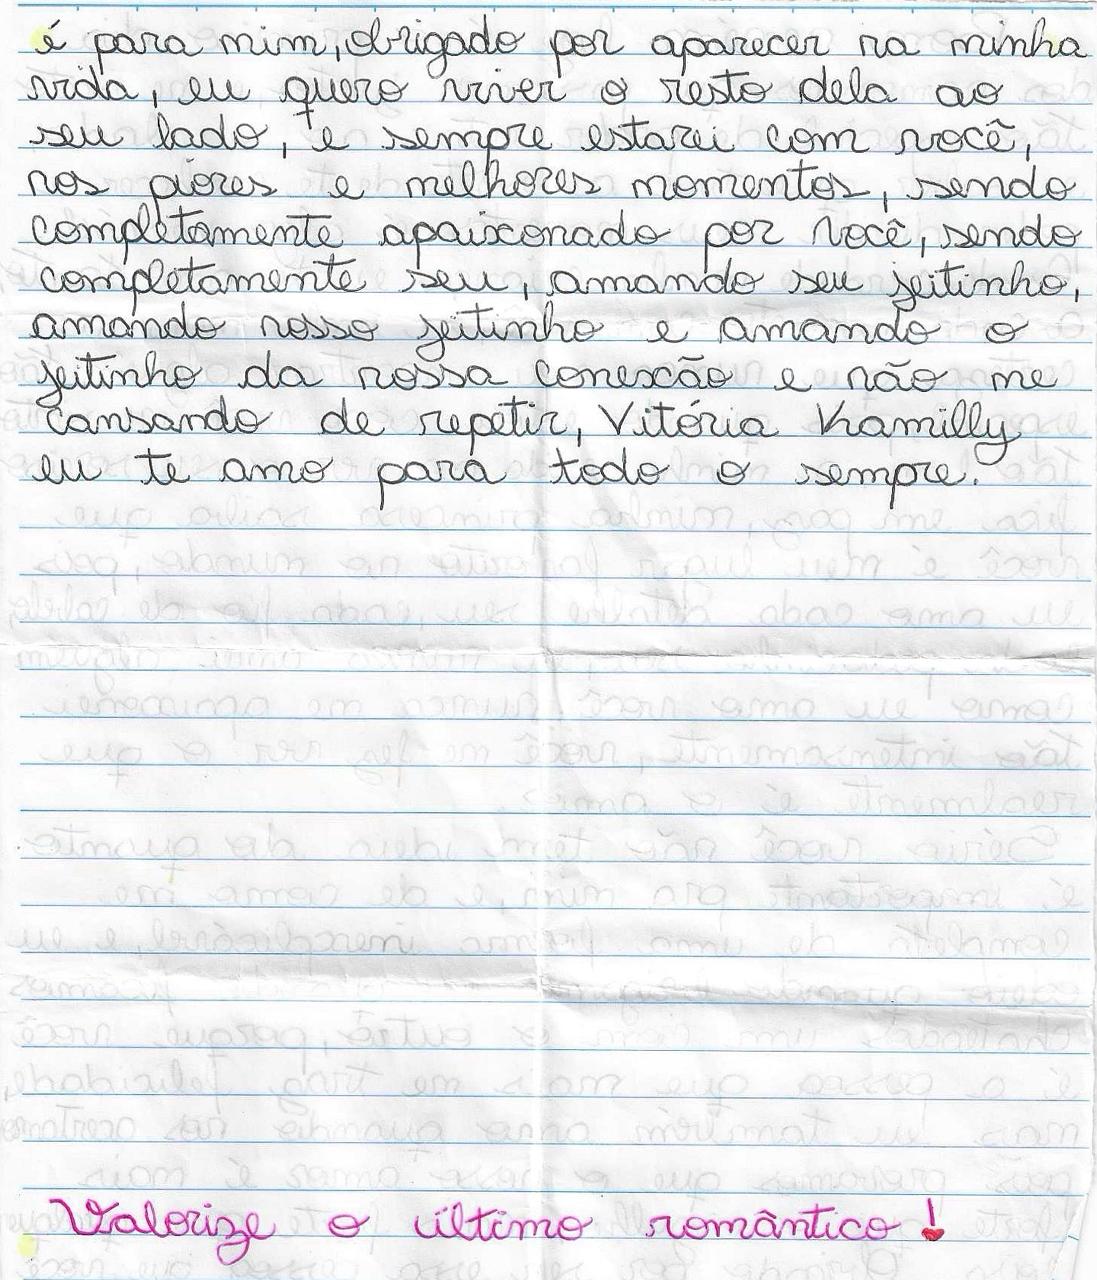 é para mim, obrigado por aparecer na minha
vida, eu quero viver o resto dela ao
seu lado, e sempre estarei com você,
nos piores e melhores momentos, sendo
completamente apaixonado por você, sendo
completamente seu, amando seu jeitinho,
amando nosso jeitinho e amando o
jeitinho da nossa conexão e não me
cansando de repetir, Vitória Kamilly
eu te amo para todo o sempre.
Valorize o último romântico!